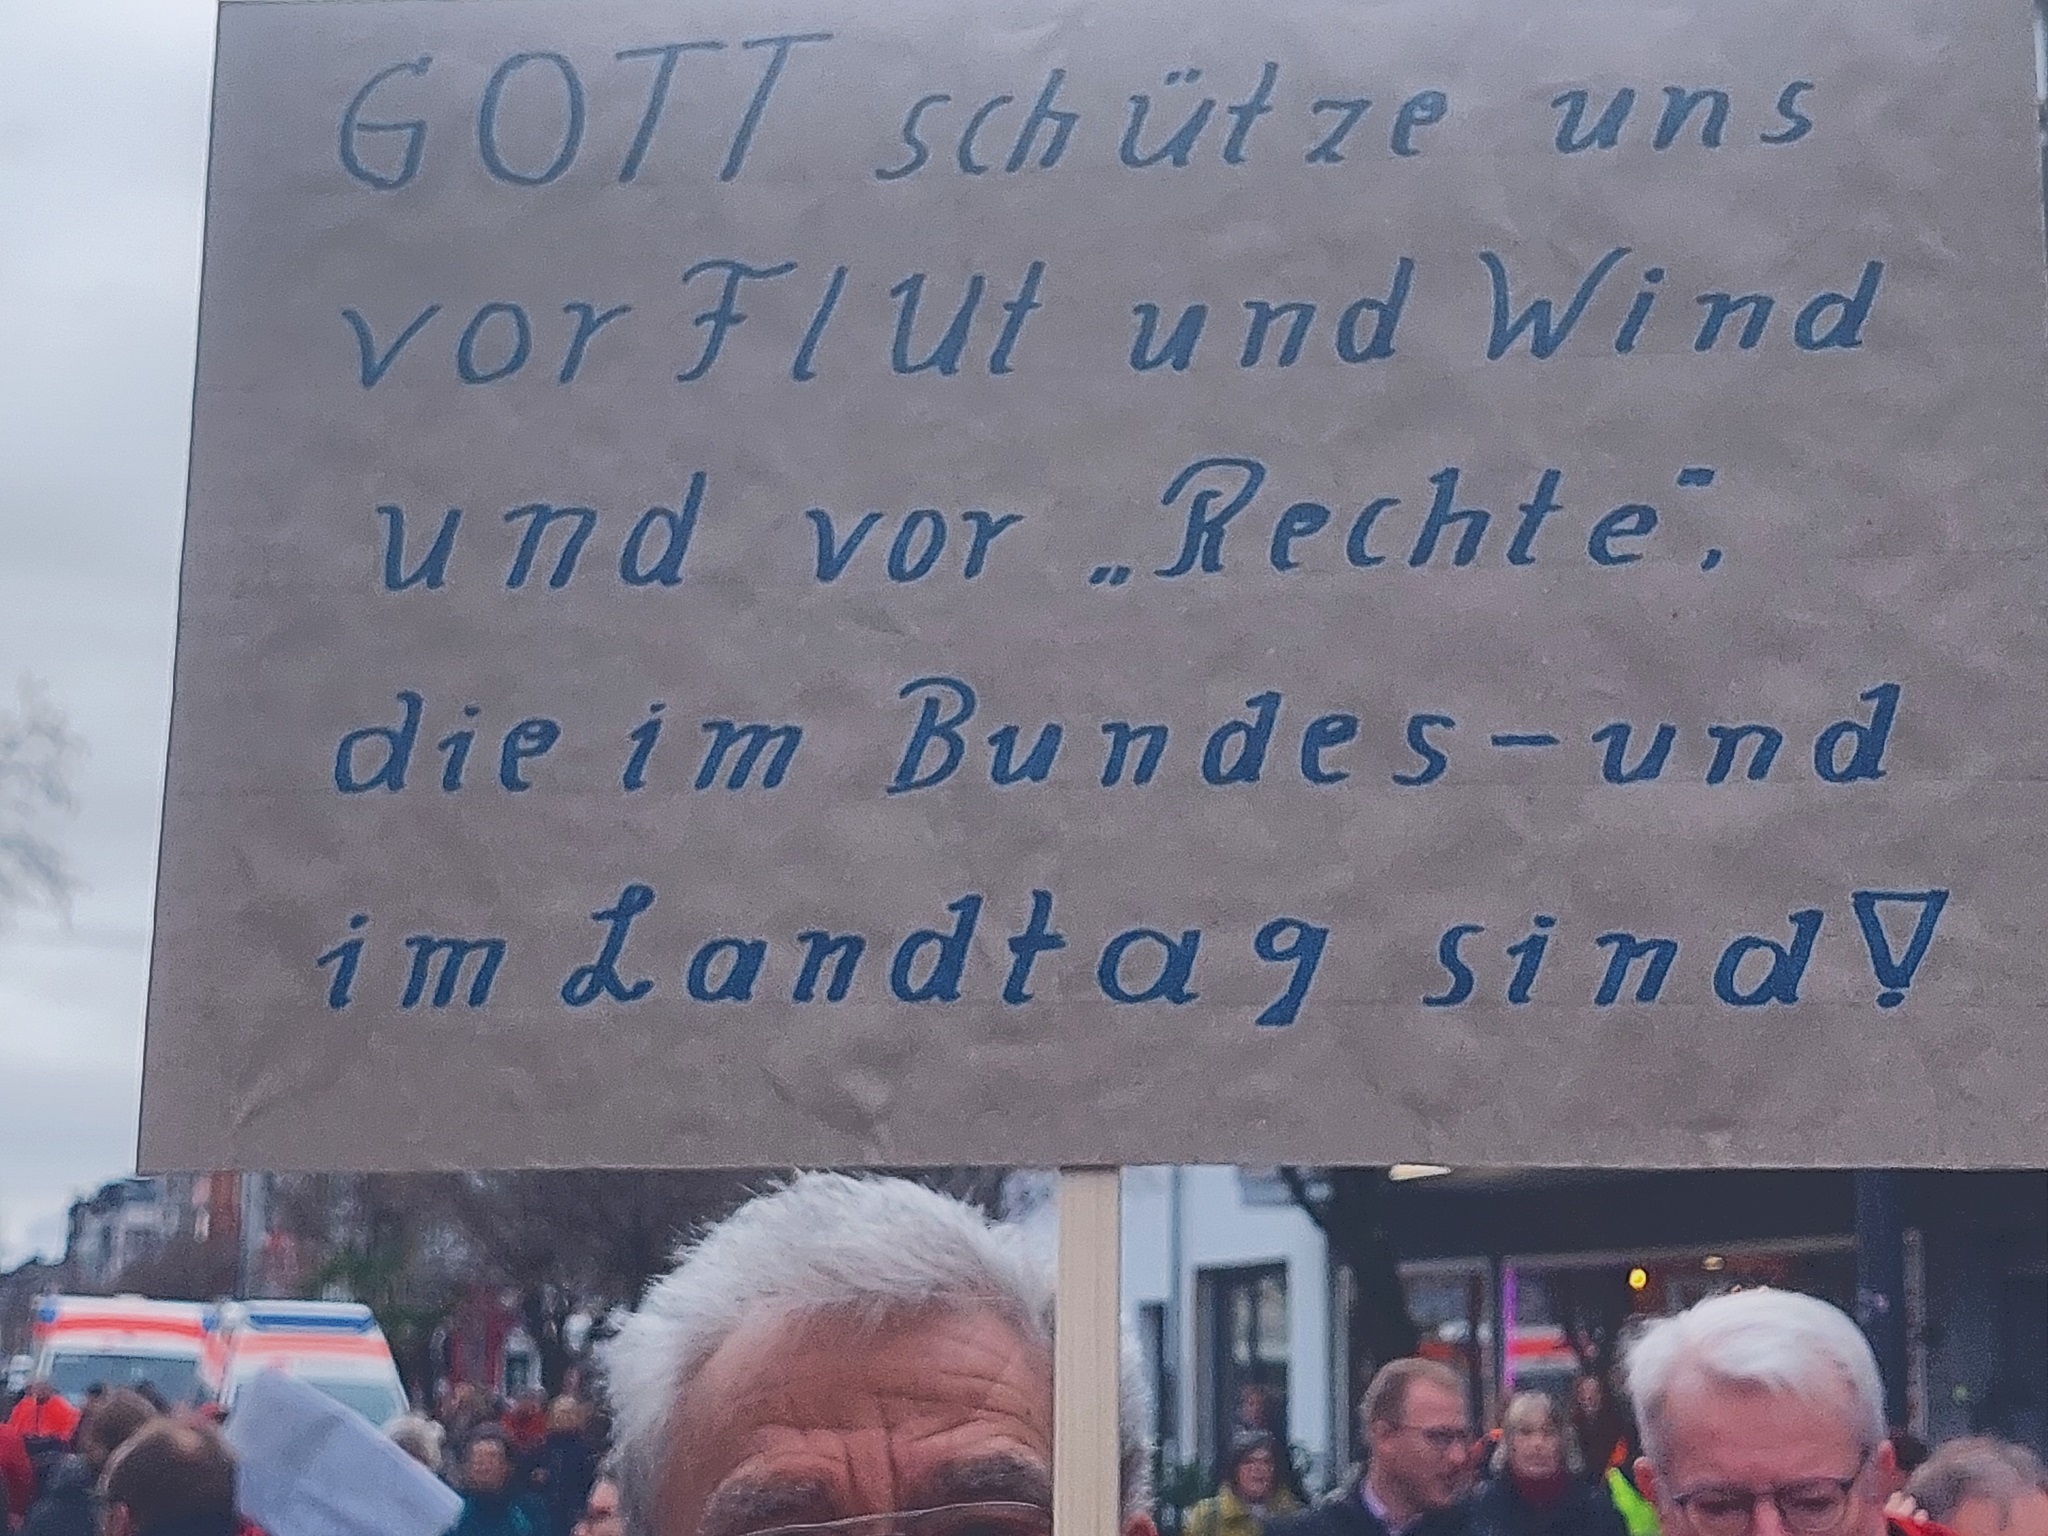 GOTT schütze uns
vor Flut und Wind
und vor „Rechte“,
die im Bundes-und
im Landtag sind!